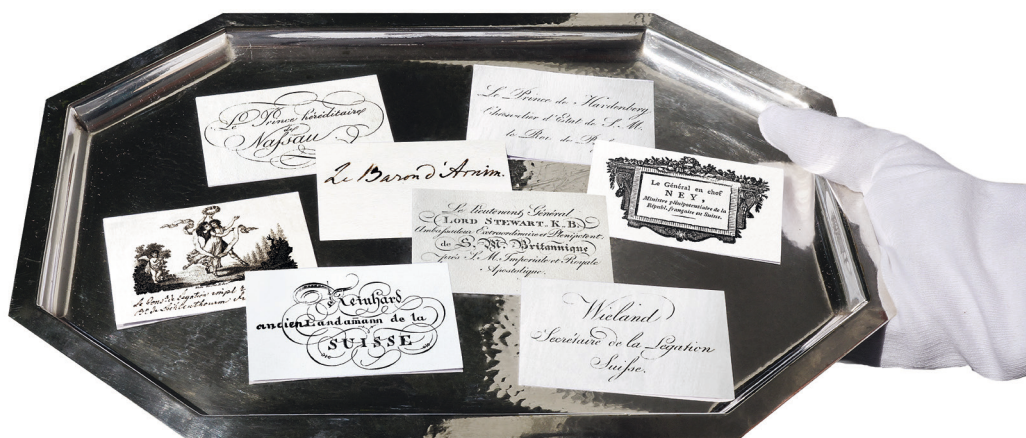 Le Prince héréditaire
de
Naſsau
Le Prince de Hardenberg
Chancelier d'Etat de S. M.
le Roi de
Le Baron d'Arnim.
Le Général en chef
NEY,
Ministre plénipotentiaire de la
Républ. française en Suisse.
Le Lieutenant Général
LORD STEWART. K. B.
Ambaſsadeur Extraordinaire et Plenipotent.
de S. M. Britannique
près S. M. Imperiale et Royale
Apostolique.
Reinhard
ancien Landamann de la
SUISSE
Wieland
Secrétaire de la Legation
Suiſse.